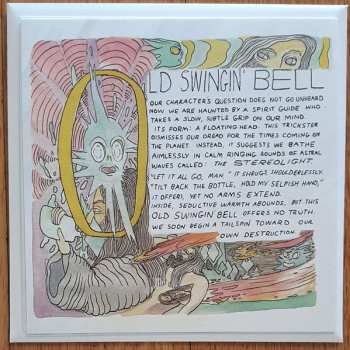 OLD SWINGIN' BELL
OUR CHARACTERS QUESTION DOES NOT GO UNHEARD
NOW WE ARE HAUNTED BY A SPIRIT GUIDE WHO
TAKES A SLOW, SUBTLE GRIP ON OUR MIND.
ITS FORM: A FLOATING HEAD. THIS TRICKSTER
DISMISSES OUR DREAD FOR THE TIMES COMING ON
THE PLANET. INSTEAD, IT SUGGESTS WE BATHE
AIMLESSLY IN CALM RINGING SOUNDS OF ASTRAL
WAVES CALLED: THE STEREOLIGHT.
"LET IT ALL GO, MAN" IT SHRUGS SHOULDERLESSLY.
"TILT BACK THE BOTTLE, HOLD MY SELFISH HAND,"
IT OFFERS, YET NO ARMS EXTEND.
INSIDE, SEDUCTIVE WARMTH ABOUNDS, BUT THIS
OLD SWINGIN BELL OFFERS NO TRUTH.
WE SOON BEGIN A TAILSPIN TOWARD OUR
OWN DESTRUCTION.